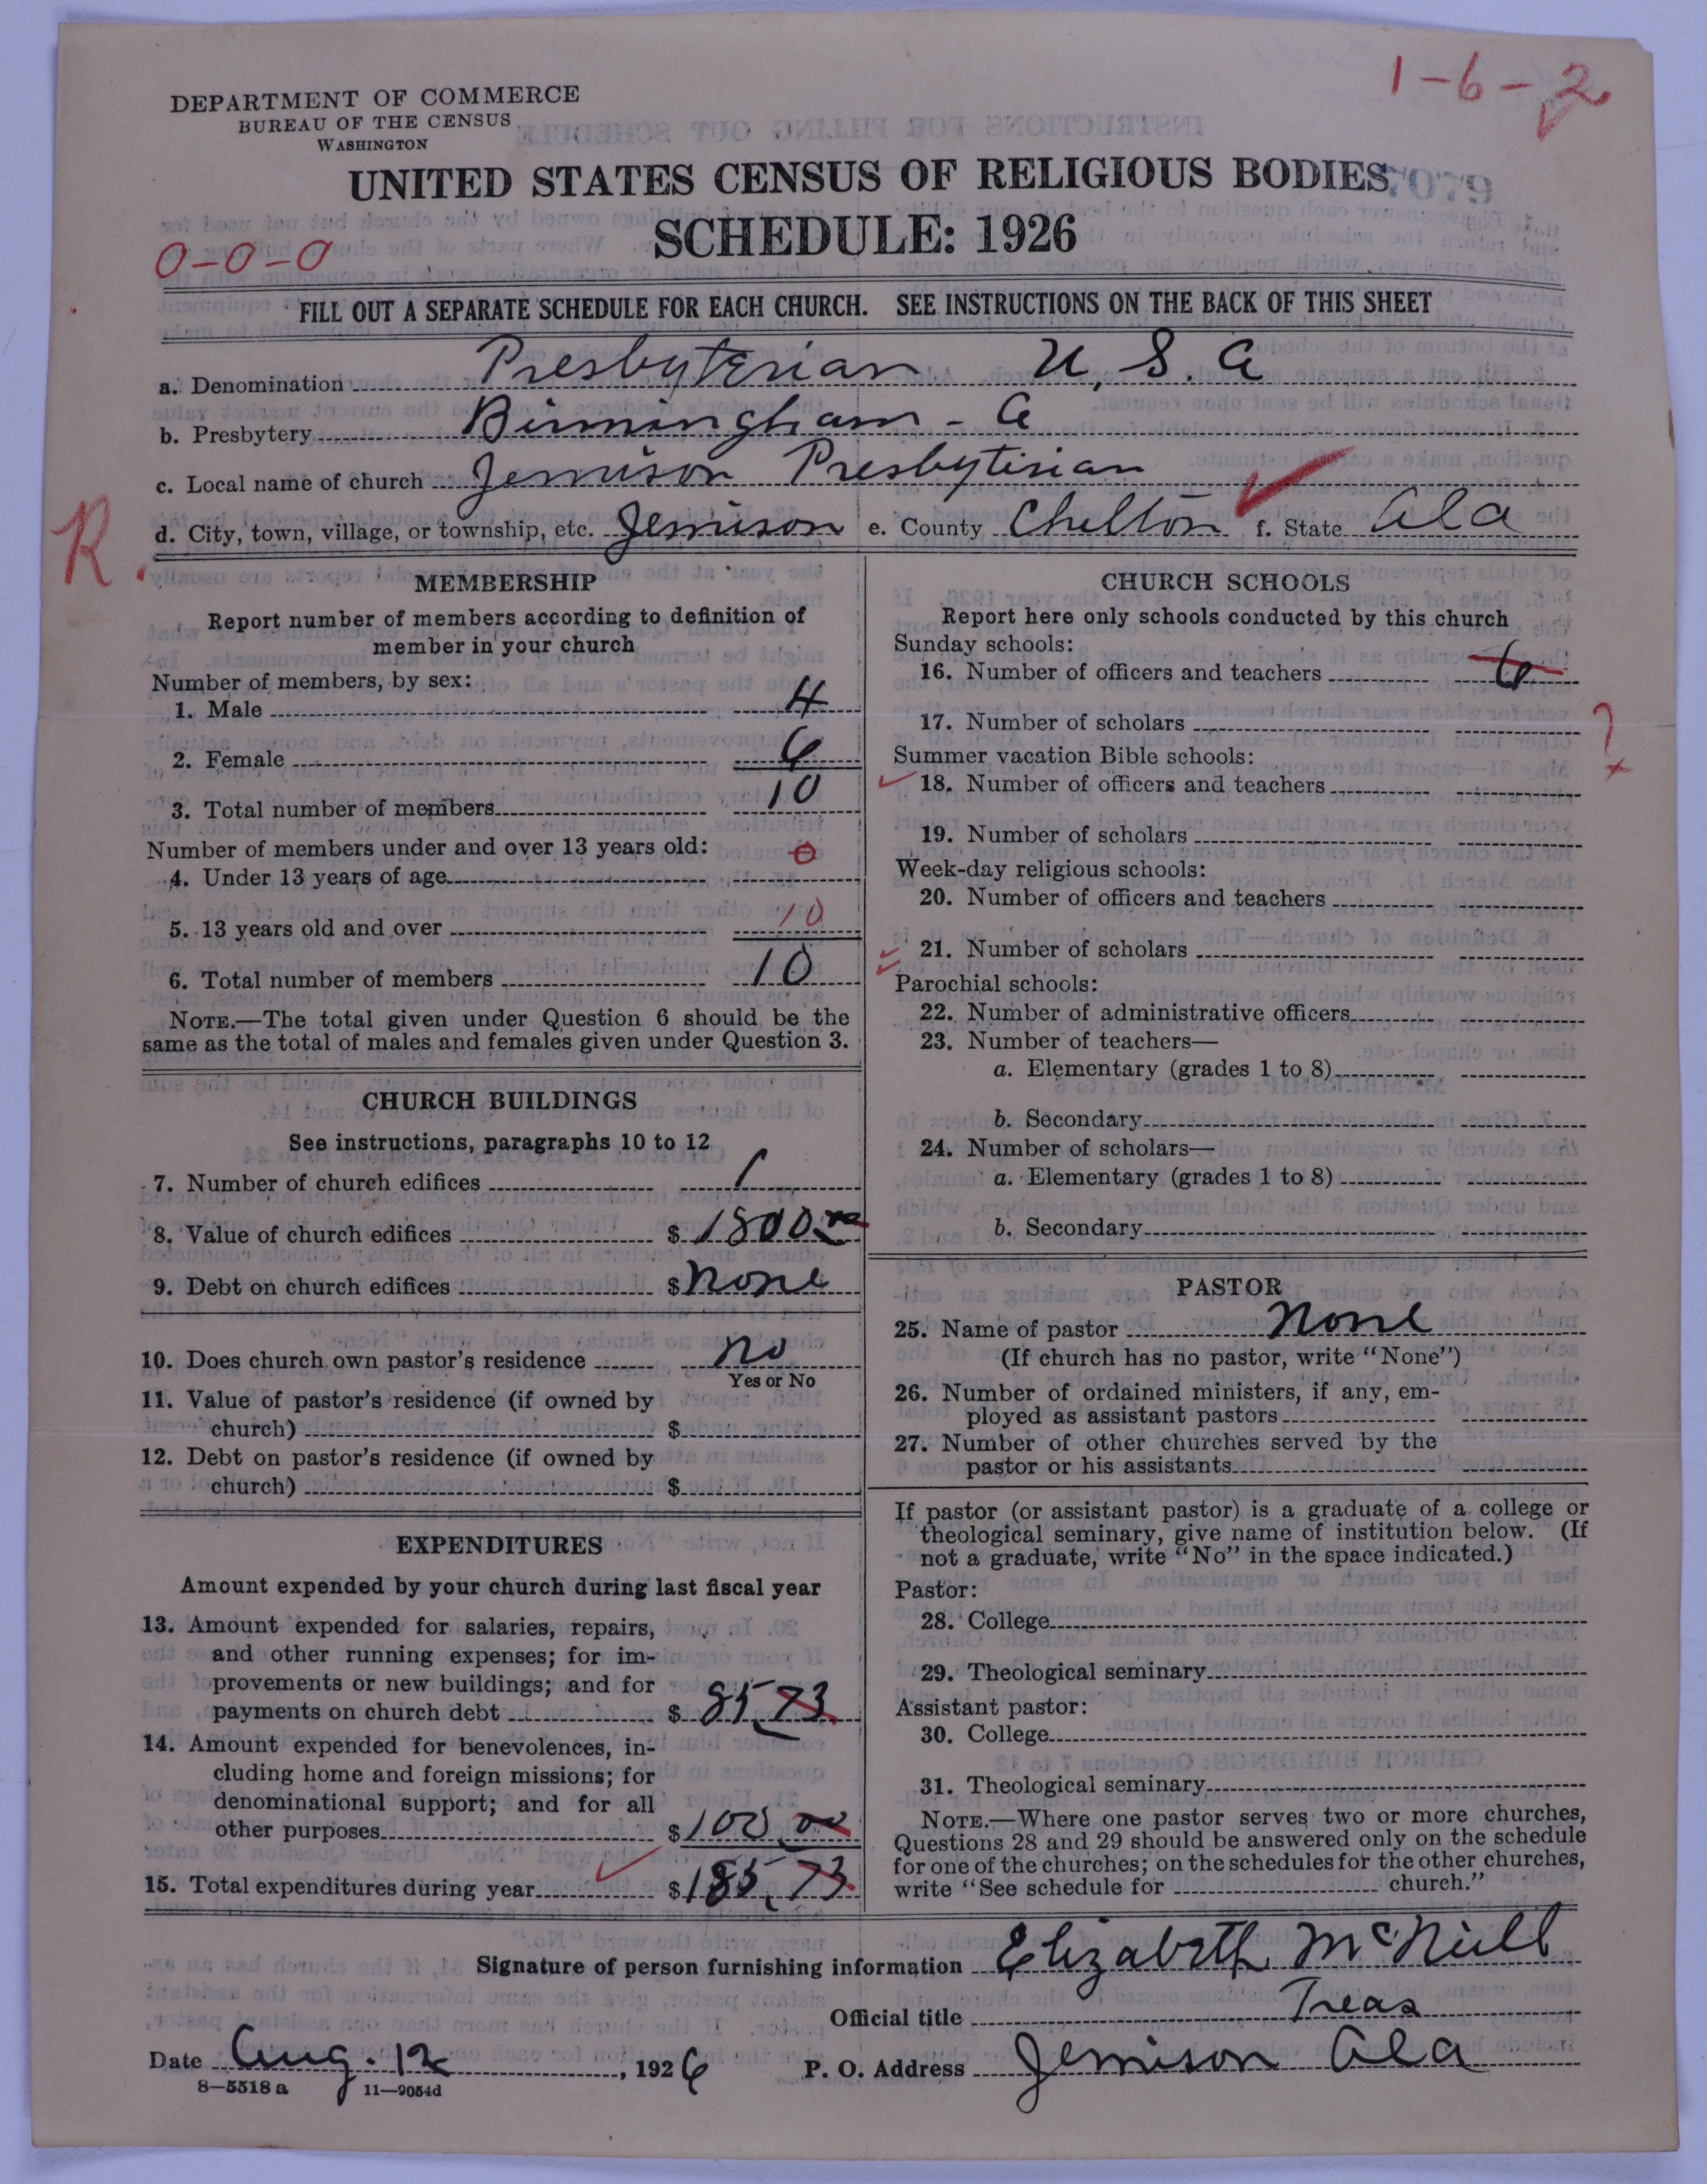 1-6-2
DEPARTMENT OF COMMERCE
BUREAU OF THE CENSUS
WASHINGTON
UNITED STATES CENSUS OF RELIGIOUS BODIES
SCHEDULE: 1926
0-0-0
FILL OUT A SEPARATE SCHEDULE FOR EACH CHURCH. SEE INSTRUCTIONS ON THE BACK OF THIS SHEET
a. Denomination Presbyterian U, S. A
b. Presbytery Birmingham - A
c. Local name of church Jemison Presbyterian
R.
d. City, town, village, or township, etc. Jemison e. County Chilton f. State Ala
MEMBERSHIP
Report number of members according to definition of
member in your church
Number of members, by sex:
1. Male 4
2. Female 6
3. Total number of members 10
Number of members under and over 13 years old:
4. Under 13 years of age 0
5. 13 years old and over 10
6. Total number of members 10
NOTE.—The total given under Question 6 should be the
same as the total of males and females given under Question 3.
CHURCH BUILDINGS
See instructions, paragraphs 10 to 12
7. Number of church edifices 1
8. Value of church edifices $ 1800.00
9. Debt on church edifices $ None
10. Does church own pastor's residence No
Yes or No
11. Value of pastor's residence (if owned by
church) $
12. Debt on pastor's residence (if owned by
church) $
EXPENDITURES
Amount expended by your church during last fiscal year
13. Amount expended for salaries, repairs,
and other running expenses; for im-
provements or new buildings; and for
payments on church debt $ 85.73
14. Amount expended for benevolences, in-
cluding home and foreign missions; for
denominational support; and for all
other purposes $ 100.00
15. Total expenditures during year $ 185.73
CHURCH SCHOOLS
Report here only schools conducted by this church
Sunday schools:
16. Number of officers and teachers
17. Number of scholars
?
Summer vacation Bible schools:
18. Number of officers and teachers
19. Number of scholars
Week-day religious schools:
20. Number of officers and teachers
21. Number of scholars
Parochial schools:
22. Number of administrative officers
23. Number of teachers—
a. Elementary (grades 1 to 8)
b. Secondary
24. Number of scholars—
a. Elementary (grades 1 to 8)
b. Secondary
PASTOR
25. Name of pastor None
(If church has no pastor, write "None")
26. Number of ordained ministers, if any, em-
ployed as assistant pastors
27. Number of other churches served by the
pastor or his assistants
If pastor (or assistant pastor) is a graduate of a college or
theological seminary, give name of institution below. (If
not a graduate, write "No" in the space indicated.)
Pastor:
28. College
29. Theological seminary
Assistant pastor:
30. College
31. Theological seminary
NOTE.—Where one pastor serves two or more churches,
Questions 28 and 29 should be answered only on the schedule
for one of the churches; on the schedules for the other churches,
write "See schedule for church."
Signature of person furnishing information Elizabeth McNeill
Official title Treas
Date Aug. 12, 1926 P. O. Address Jemison Ala
8—5518 a 11—9054d